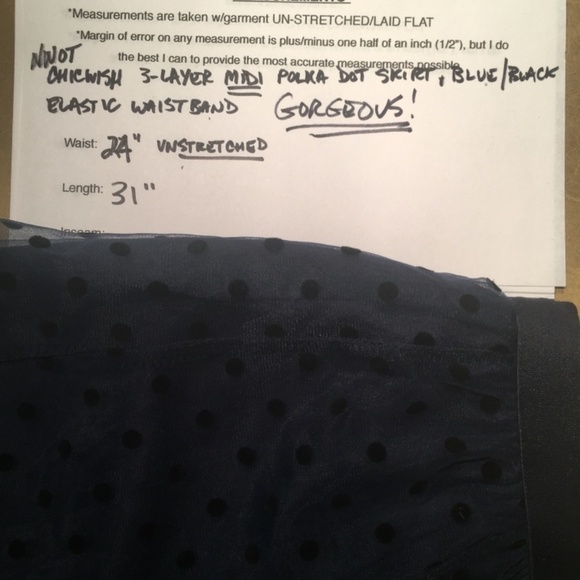 *Measurements are taken w/garment UN-STRETCHED/LAID FLAT
*Margin of error on any measurement is plus/minus one half of an inch (1/2"), but I do
the best I can to provide the most accurate measurements possible
NWOT
CHICWISH 3-LAYER MIDI POLKA DOT SKIRT, BLUE/BLACK
ELASTIC WAISTBAND GORGEOUS!
Waist: 24" UNSTRETCHED
Length: 31"
Inseam: